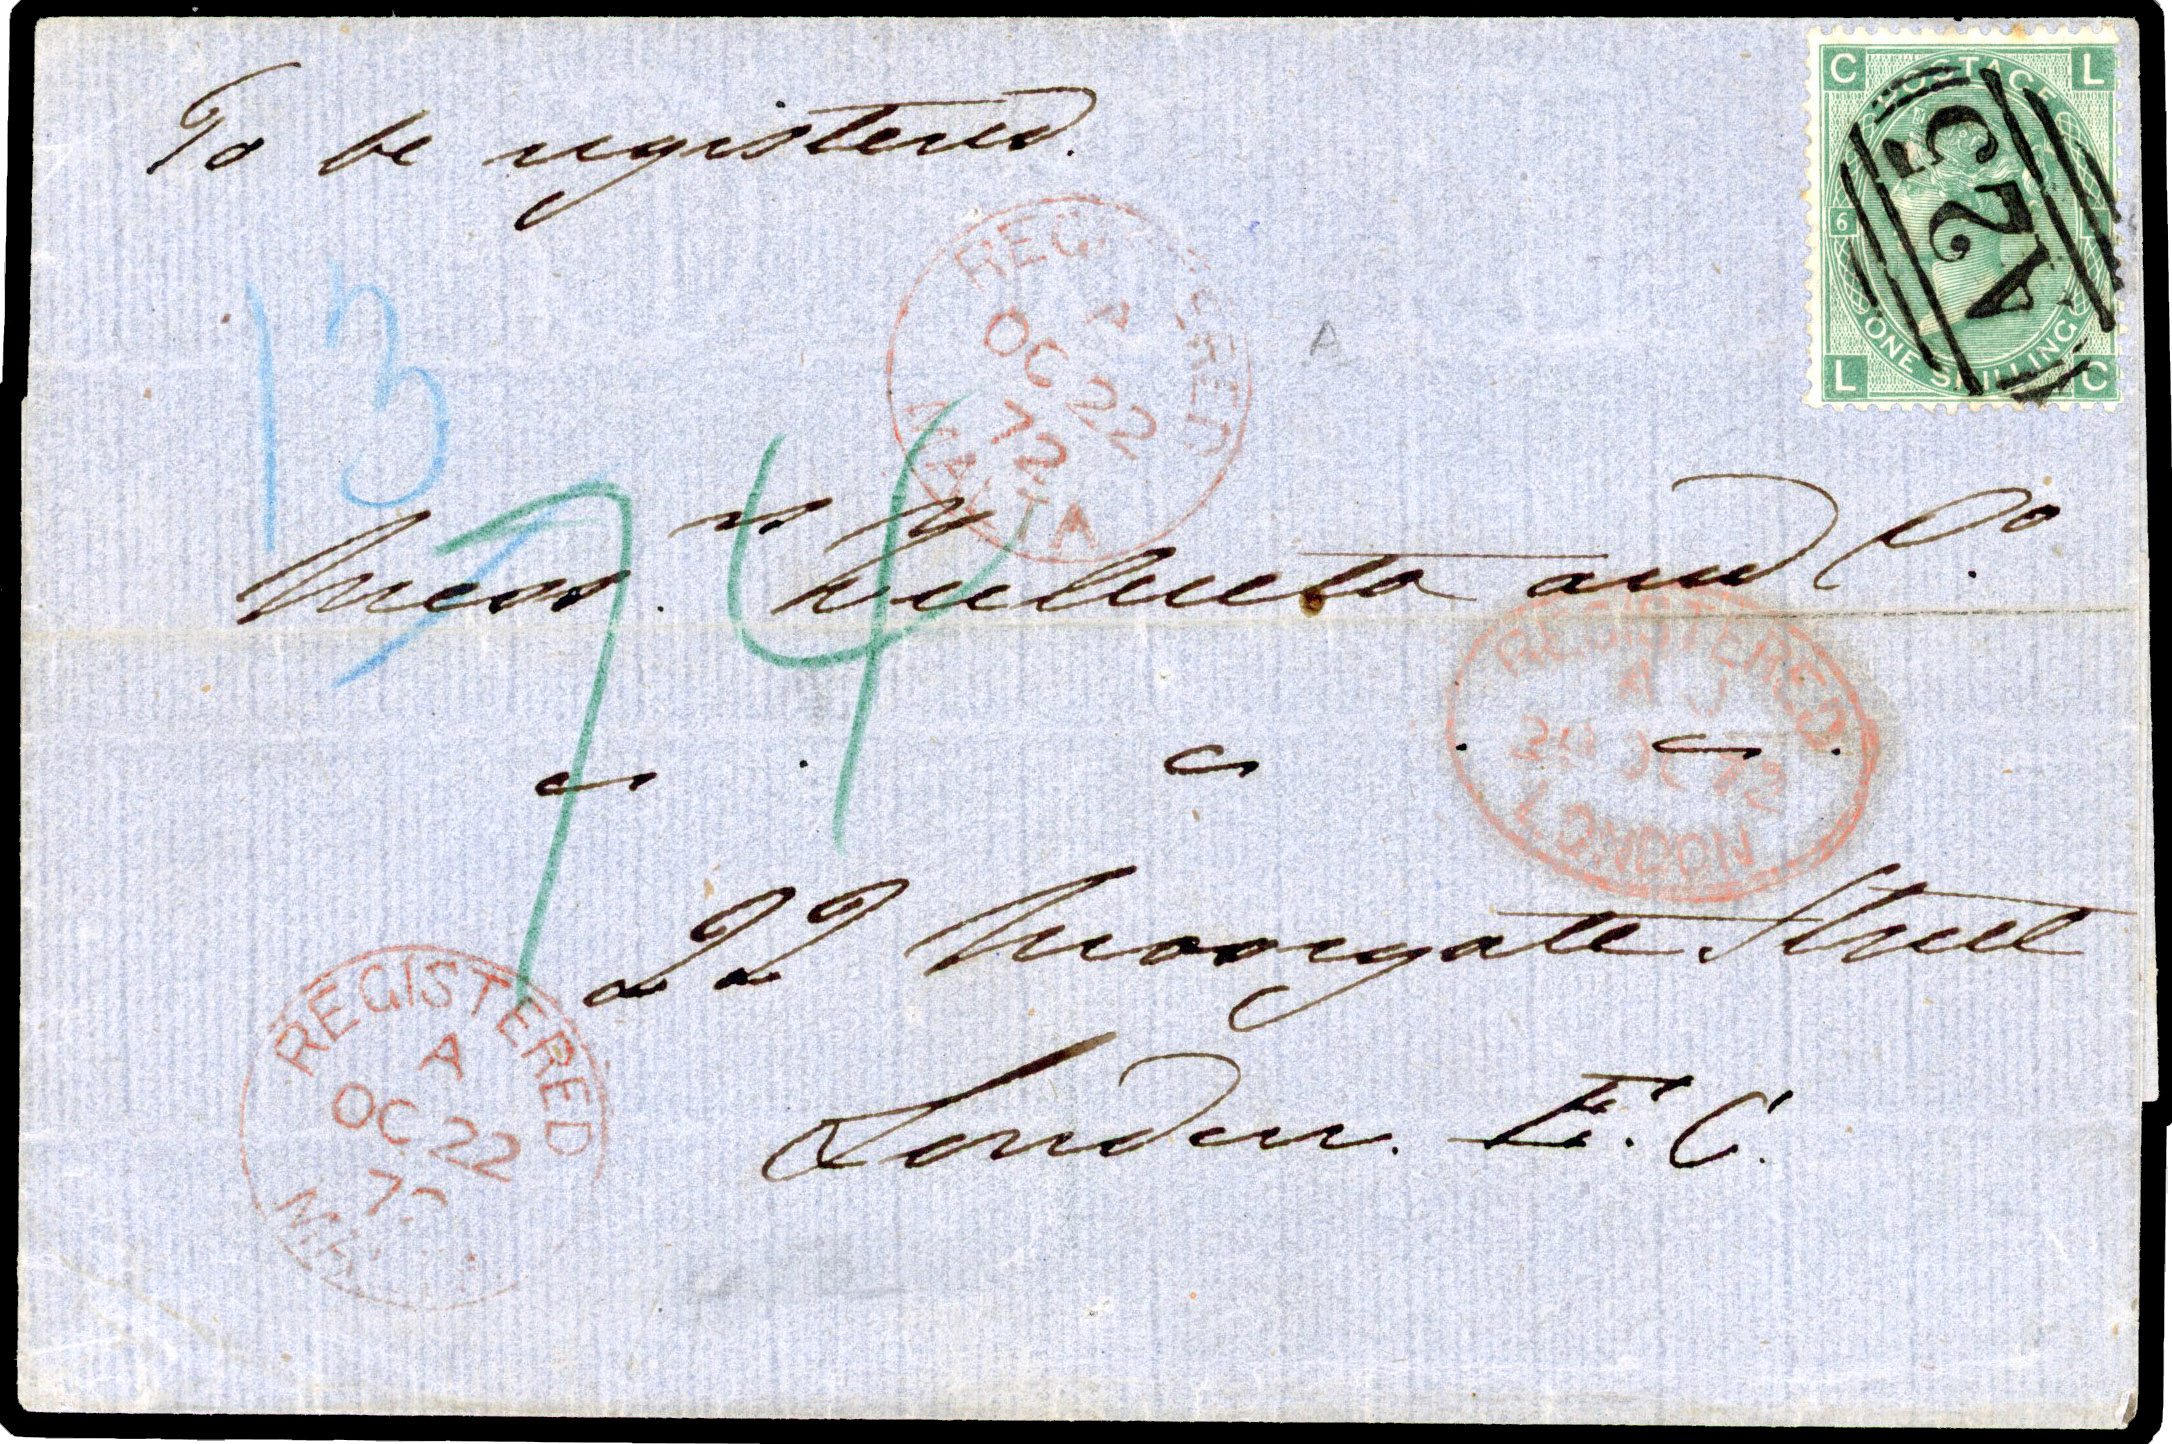 To be registered.
C POSTAGE L
A25
6
ONE SHILLING
L C
REGISTERED
A
OC 22
72
MALTA
13
74
Mess.rs Zulueta and Co.
REGISTERED
A J
OC 72
LONDON
22 Moorgate Street
London. E. C.
REGISTERED
A
OC 22
A